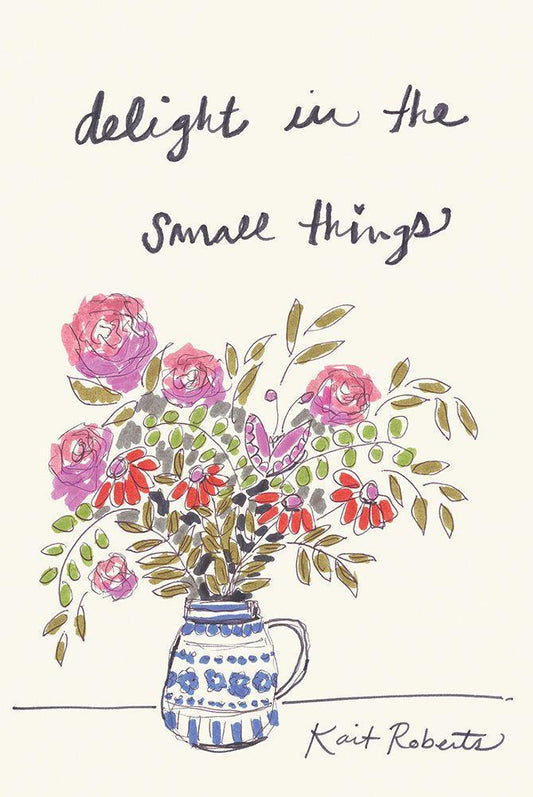 delight in the
small things
Kait Roberts